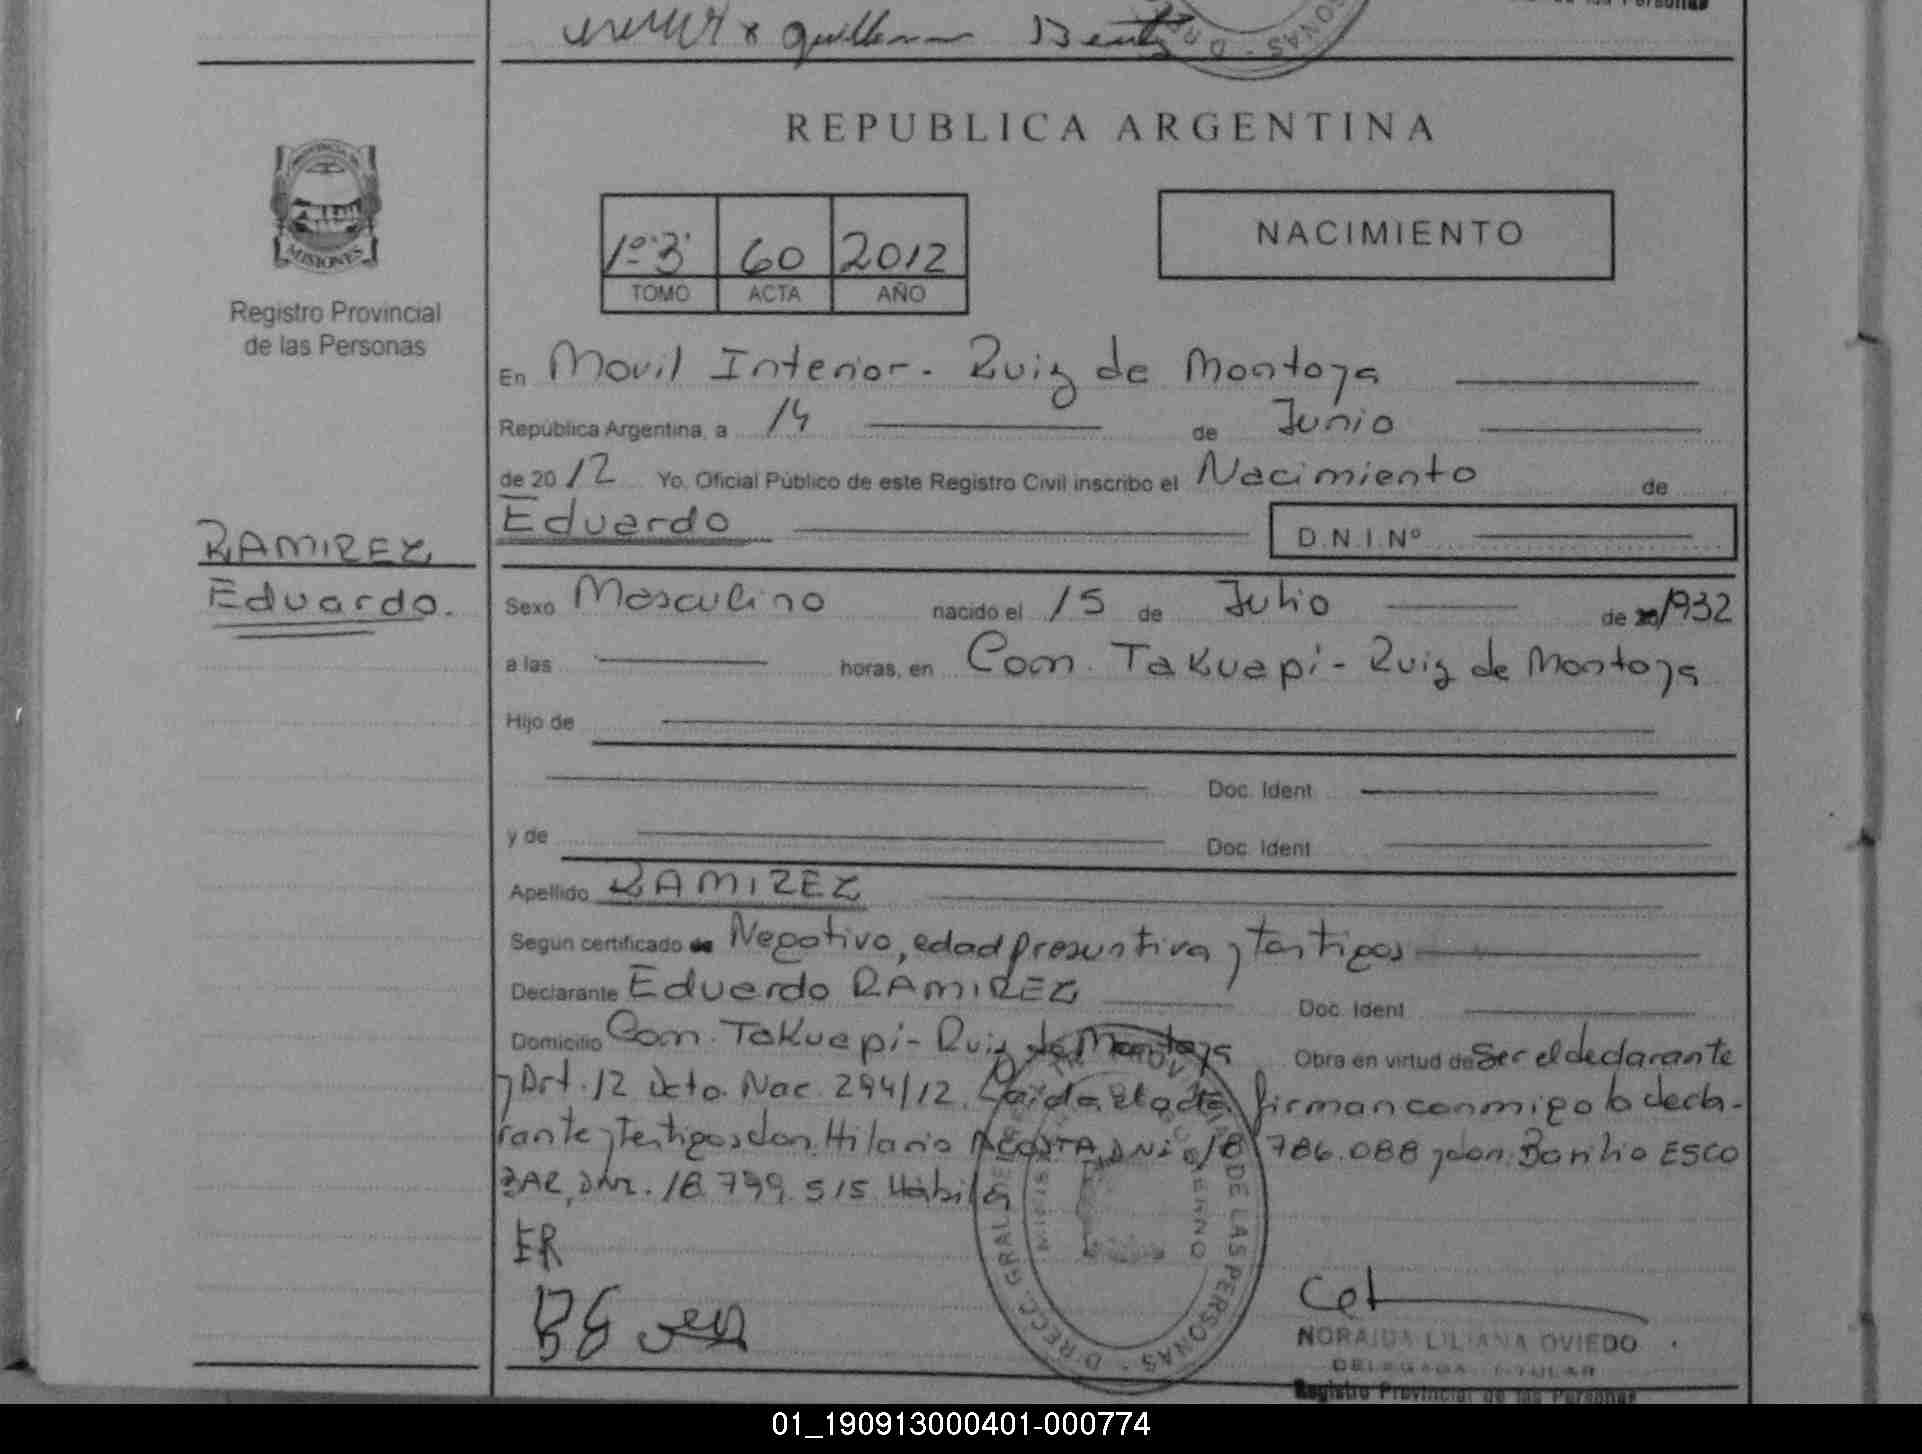 Guillermo Benitez
REPUBLICA ARGENTINA
MISIONES
Registro Provincial
de las Personas
1º 3' 60 2012
TOMO ACTA AÑO
NACIMIENTO
En Movil Interior - Ruiz de Montoya
República Argentina, a 14 de Junio
de 2012 Yo, Oficial Público de este Registro Civil inscribo el Nacimiento de
Eduardo D.N.I.Nº
RAMIREZ
Eduardo.
Sexo Masculino nacido el 15 de Julio de 1932
a las horas, en Com. Takuapi - Ruiz de Montoya
Hijo de
Doc. Ident
y de Doc. Ident
Apellido RAMIREZ
Según certificado de Negativo, edad presuntiva y testigos
Declarante Eduardo RAMIREZ Doc. Ident
Domicilio Com. Takuapi - Ruiz de Montoya Obra en virtud de Ser el declarante
y Art. 12 Dcto. Nac. 294/12. Leida el acta firman conmigo lo decla-
rante y testigos don Hilario ACOSTA, DNI 18.786.088 y don Basilio ESCO
BAR, DNI. 18.799.515 Hábiles
ER
BE
NORAIDA LILIANA OVIEDO
DELEGADA TITULAR
Registro Provincial de las Personas
01_190913000401-000774